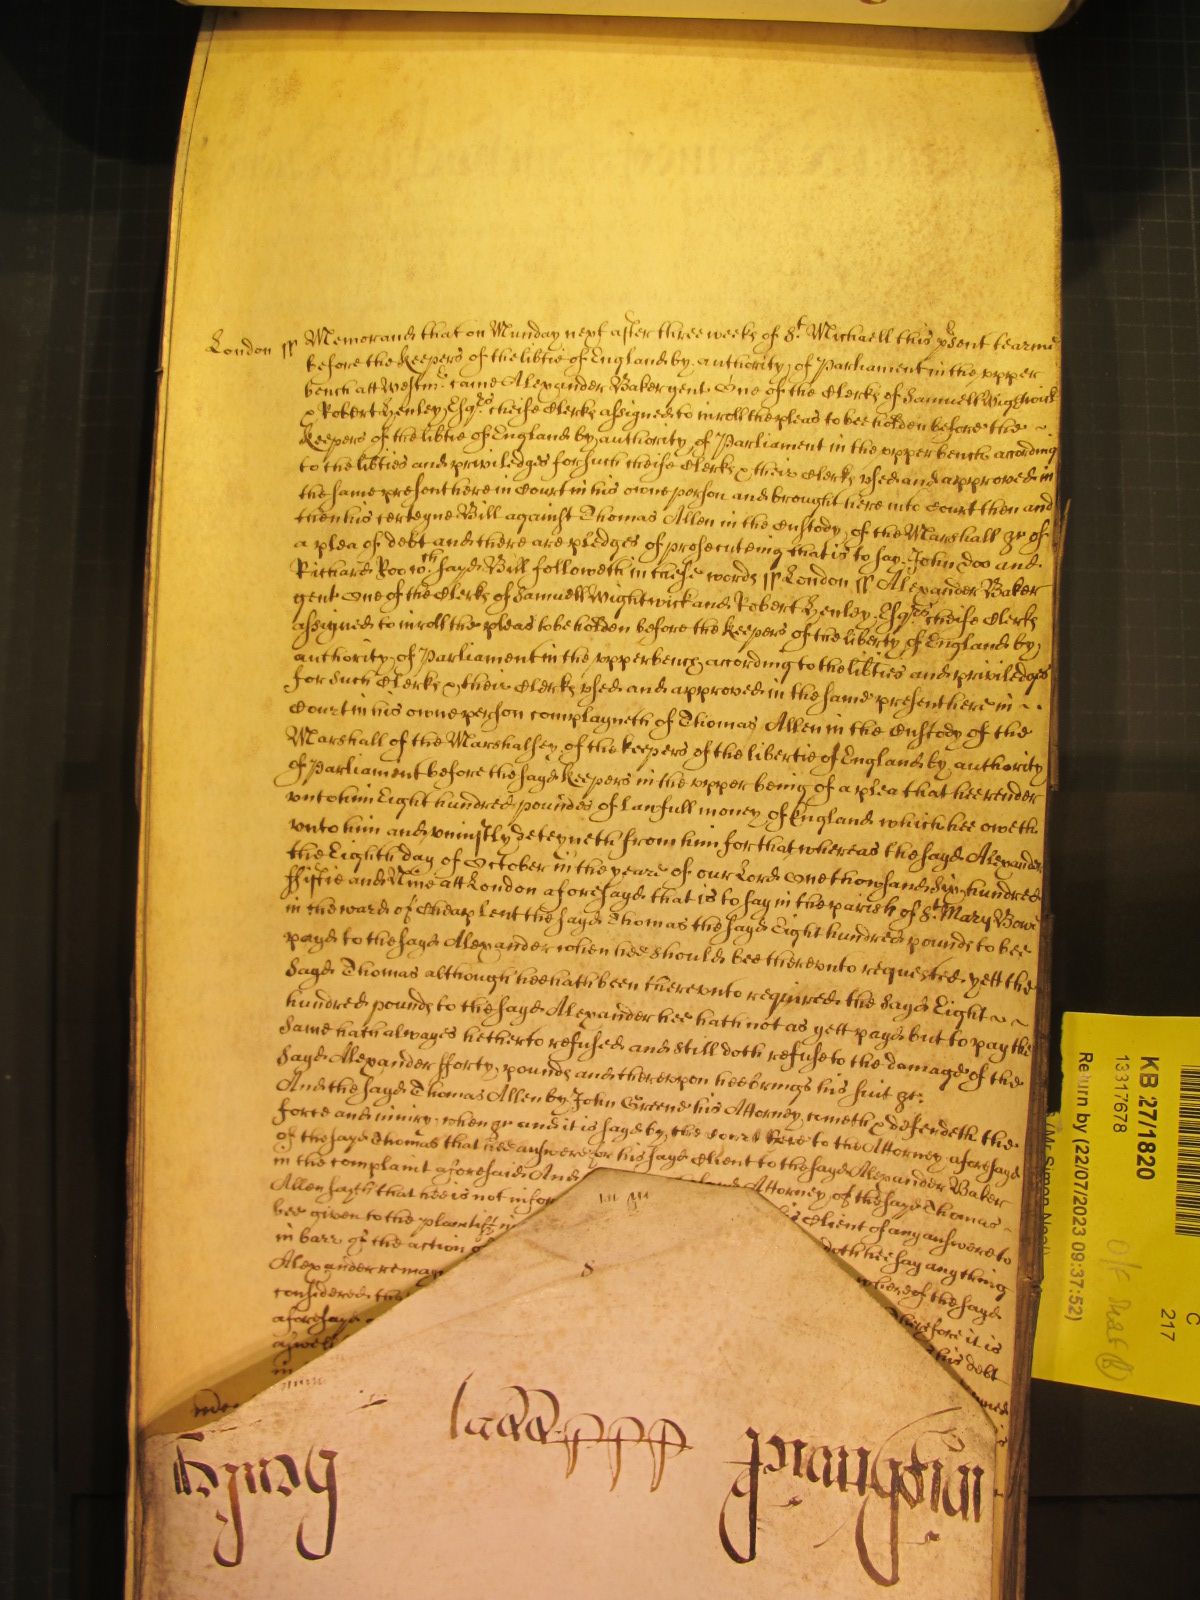 London ss Memorand that on Munday next after three weeks of St Michaell this psent tearme
before the Keepers of the libtie of England by authority of Parliament in the vpper
bench att Westmr came Alexander Baker gent One of the Clerks of Samuell Wightwick
& Robert Henley Esqrs cheife Clerks assigned to inroll the pleas to bee holden before the ~
Keepers of the libtie of England by authority of Parliament in the vpper bench according
to the libties and priviledges for such cheife Clerks & their Clerks vsed and approved in
the same present here in Court in his owne person and brought here into Court then and
then his certeyne Bill against Thomas Allen in the Custody of the Marshall &c of
a plea of debt and there are pledges of prosecuteing that is to say John Doo and
Richard Roo wch sayd Bill followeth in these words ss London ss Alexander Baker
gent One of the Clerks of Samuell Wightwick and Robert Henley Esqrs cheife Clerks
assigned to inroll the pleas to be holden before the Keepers of the liberty of England by
authority of Parliament in the vpper bench according to the libties and priviledges
for such Clerks & their Clerks vsed and approved in the same present here in ~
Court in his owne person complayneth of Thomas Allen in the Custody of the
Marshall of the Marshalsey of the keepers of the libertie of England by authority
of Parliament before the sayd Keepers in the vpper being of a plea that hee render
vnto him Eight hundred poundes of lawfull money of England which hee oweth
vnto him and vniustly deteyneth from him for that whereas the sayd Alexander
the Eighth day of October in the yeare of our Lord One thowsand Six hundred
ffiftie and Nine att London aforesayd that is to say in the parish of St Mary Bow
in the ward of Cheap lent the sayd Thomas the sayd Eight hundred pounds to bee
payd to the sayd Alexander when hee should bee therevnto requested yett the
sayd Thomas although hee hath been therevnto required the sayd Eight ~ ~
hundred pounds to the sayd Alexander hee hath not as yett payd but to pay the
same hath alwayes hetherto refused and still doth refuse to the damage of the
sayd Alexander fforty pounds and therevpon hee brings his suit &c.
And the sayd Thomas Allen by John Greene his Attorney cometh & defendeth the
force and iniury when &c and it is sayd by the Court here to the Attorney aforesayd
of the sayd Thomas that hee answere for his sayd Client to the sayd Alexander Baker
in the complaint aforesaid And Attorney of the sayd Thomas
Allen sayth that hee is not infor his Client of any answere to
bee given to the plaintiff doth hee say any thing
in barr of the action of whereof the sayd
Alexander remay Therefore it is
considered that his debt
aforesayd
aswell
in
Wightwick
Henley
KB 27/1820
13317678
Return by (22/07/2023 09:37:52)
C
217